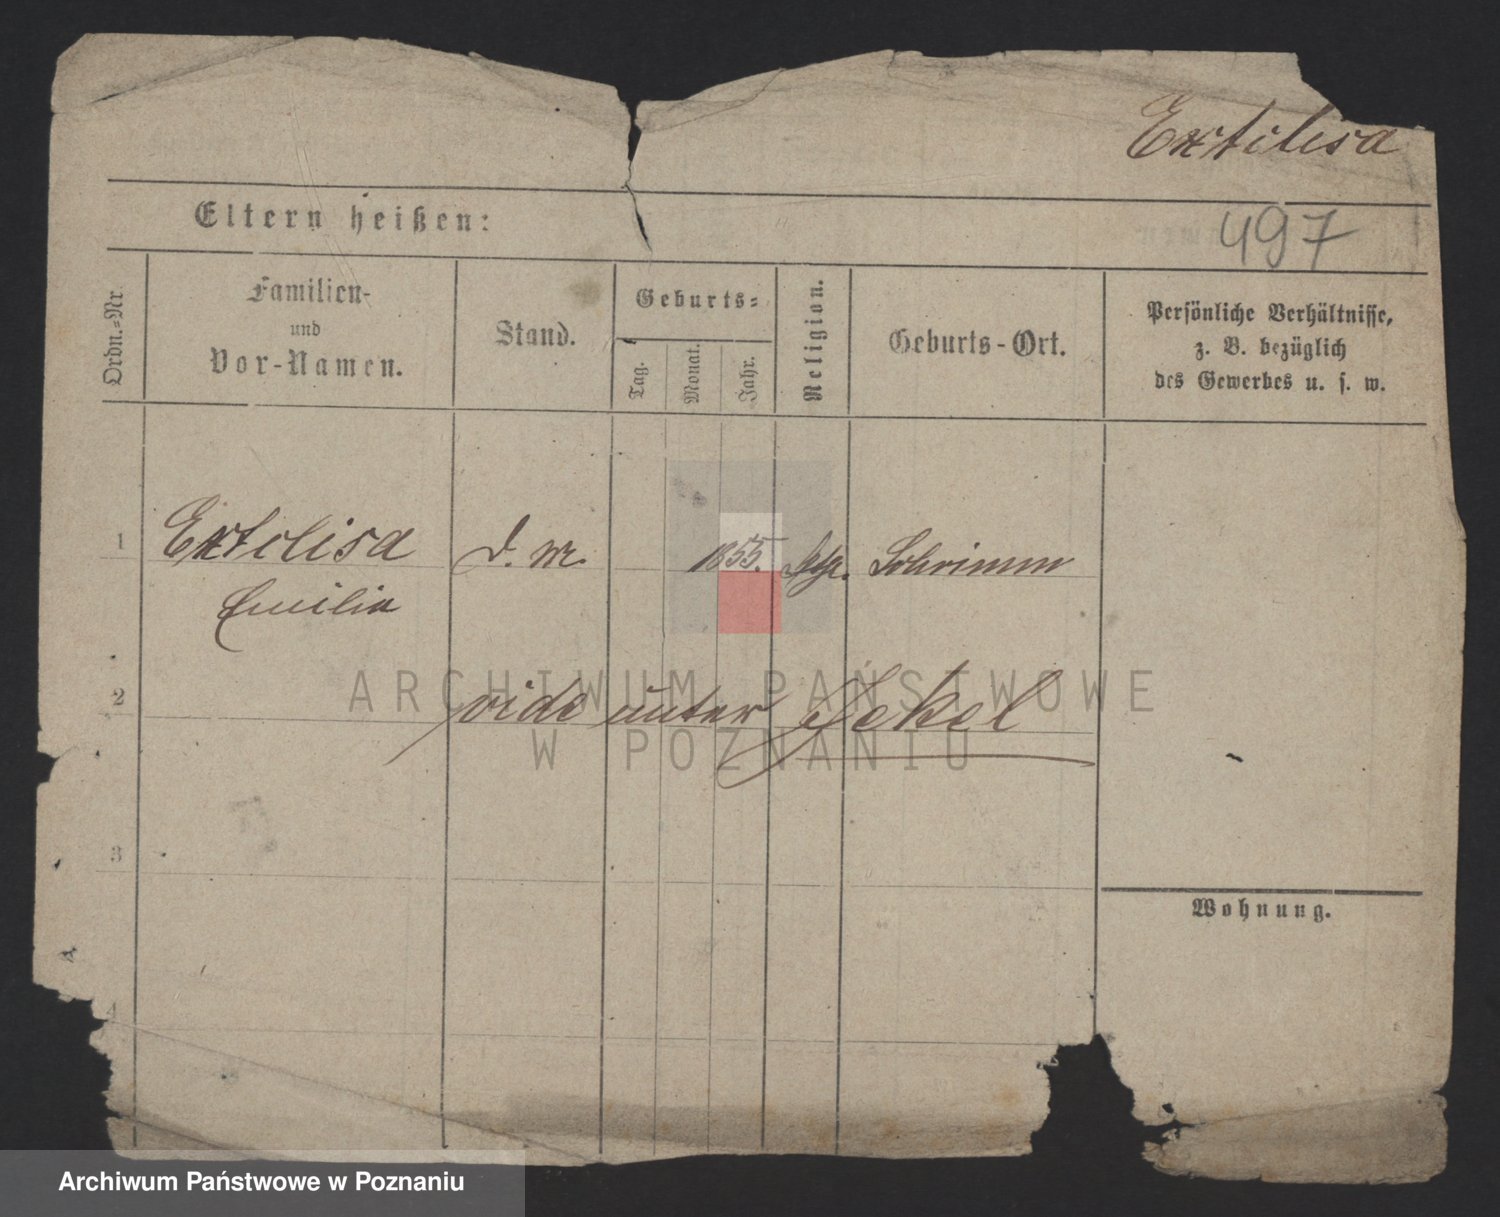 Extolisa
Eltern heißen:
497
Ordn.-Nr.
Familien-
und
Vor-Namen.
Stand.
Geburts-
Tag.
Monat.
Jahr.
Religion.
Geburts-Ort.
Persönliche Verhältnisse,
z. B. bezüglich
des Gewerbes u. s. w.
1 Extolisa d. m. 1855. Schrimm
Emilia
2 vide unter Jekel
3
Wohnung.
4
ARCHIWUM PAŃSTWOWE
W POZNANIU
Archiwum Państwowe w Poznaniu